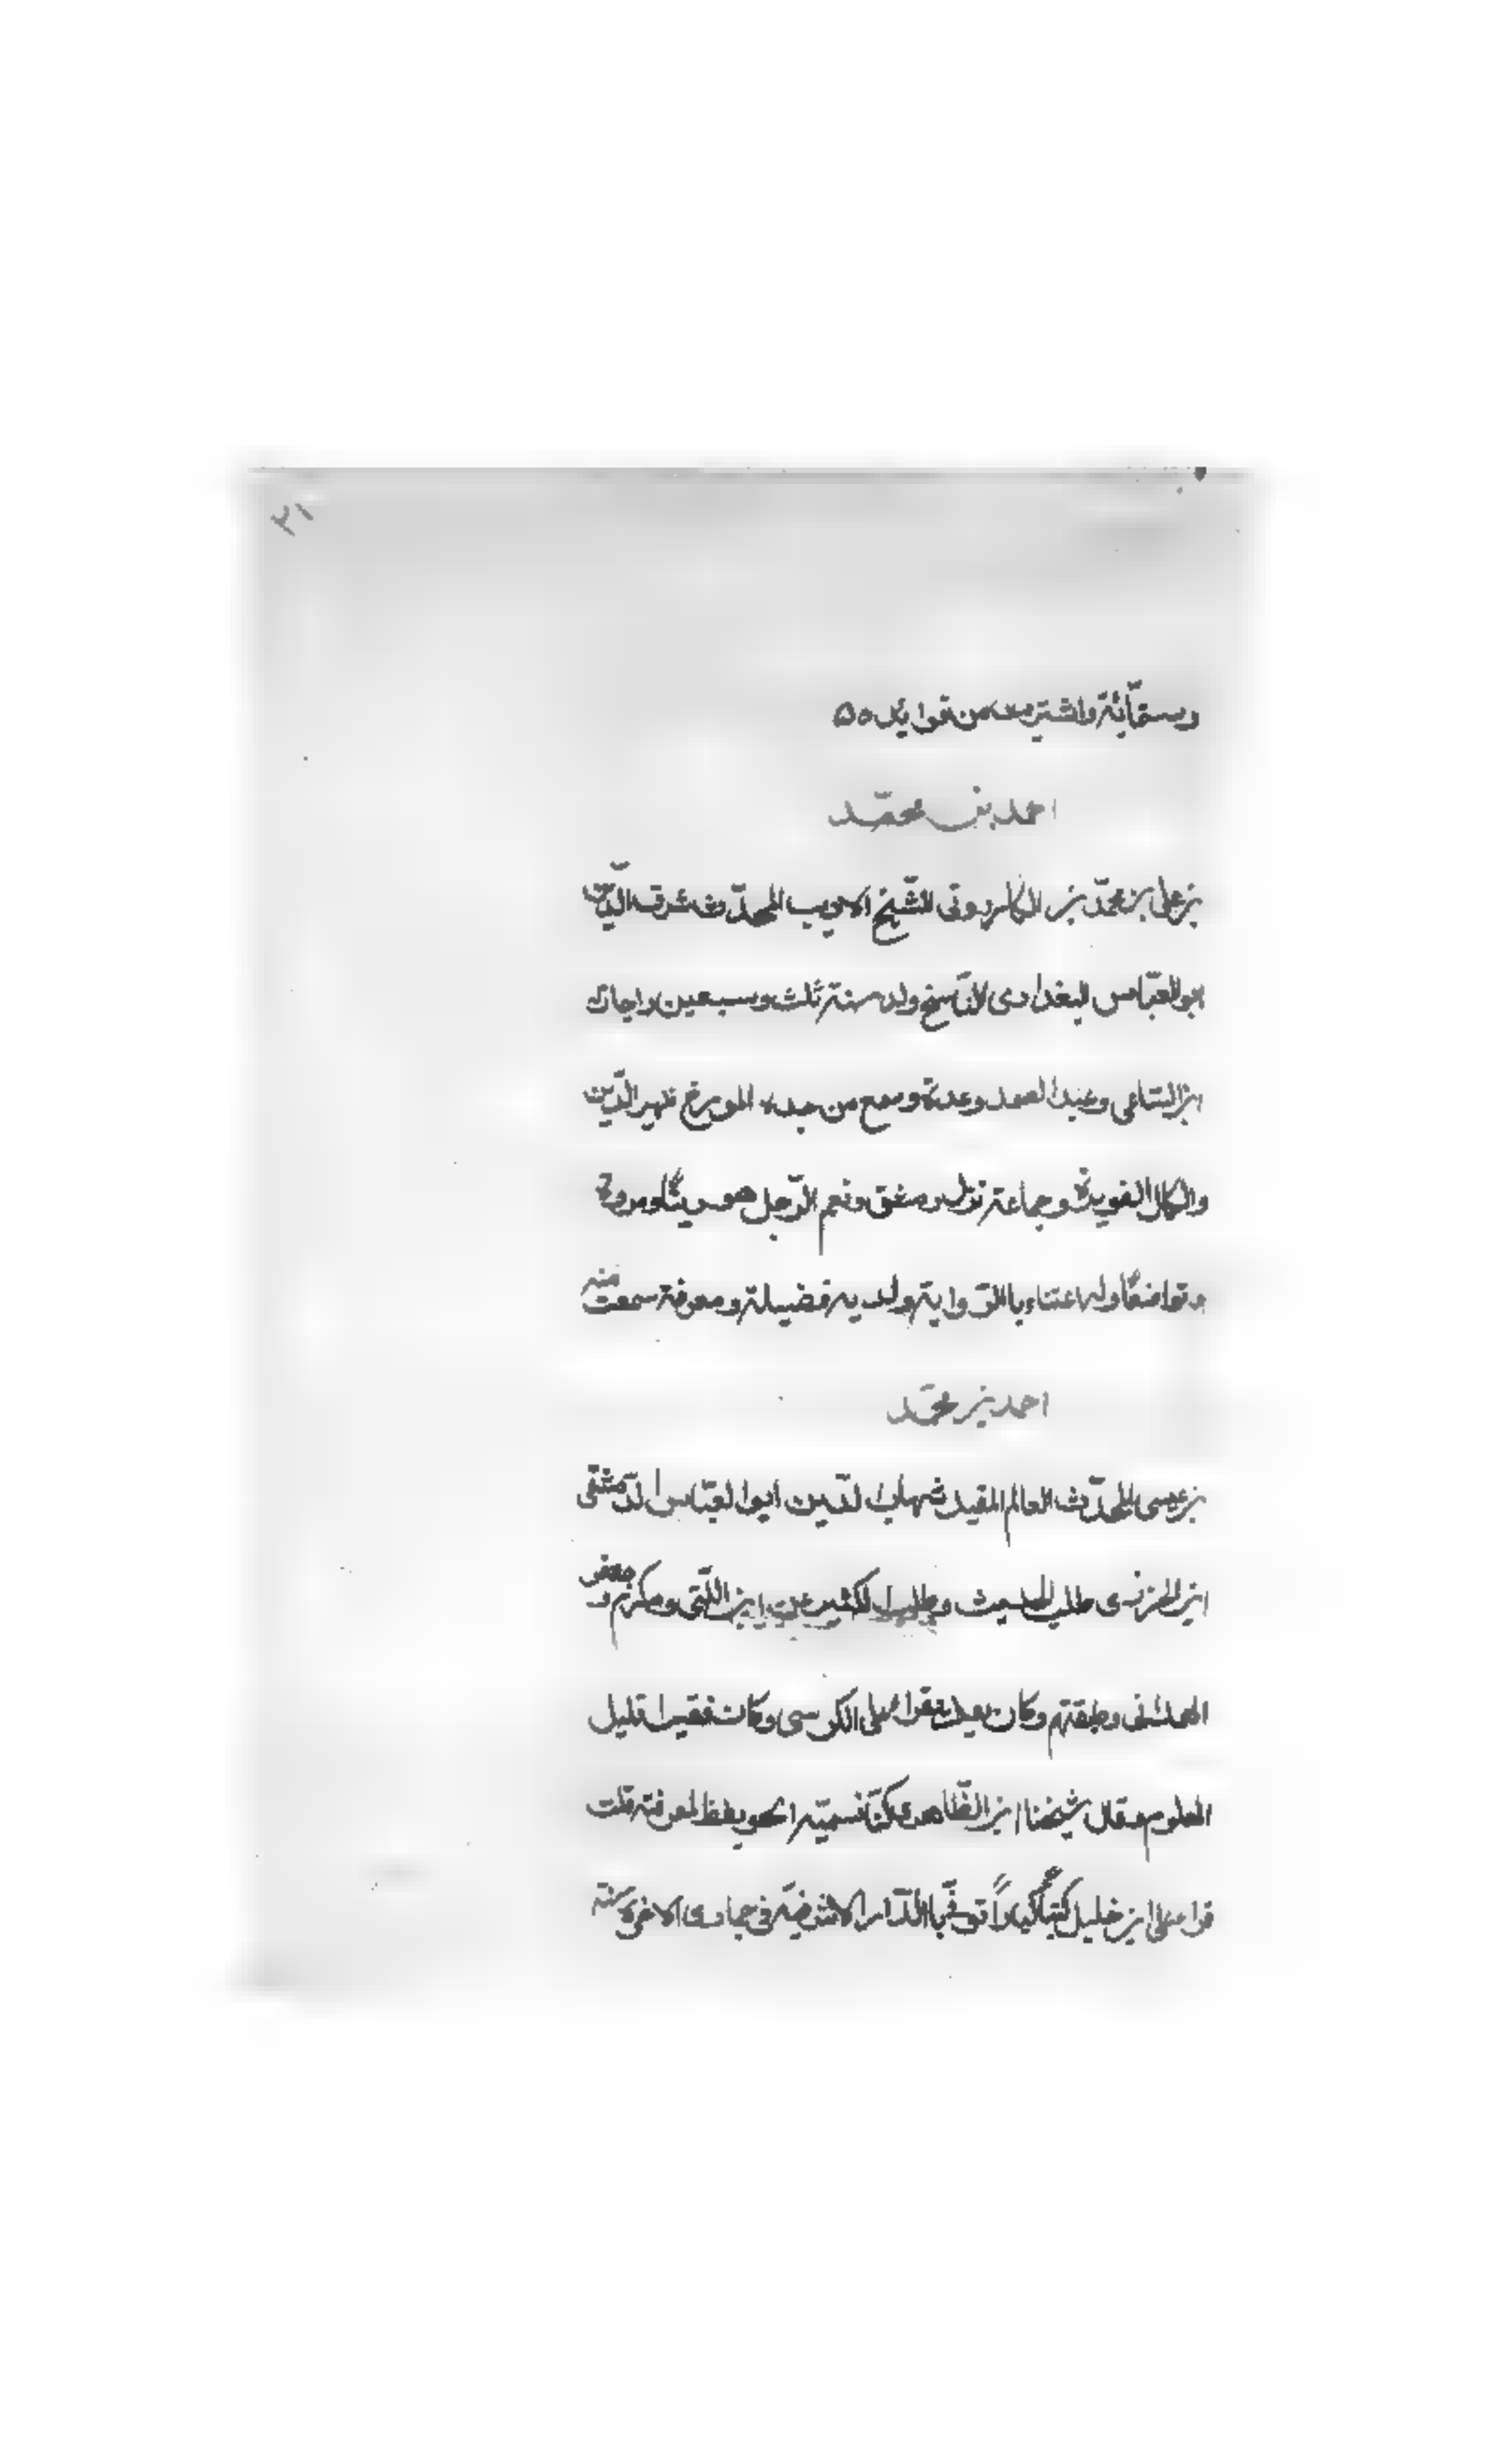 ٢١
وستمائة واشتريت من فوايده ٥
احمد بن محمد
بن على بن محمد بن الكازرونى الشيخ الاديب المحدث شرف الدين
ابو العباس البغدادى الناسخ ولد سنة ثلث وسبعين واجاز له
ابن الساعى وعبد الصمد وعدة وسمع من جده المورخ ظهير الدين
والكمال الفويرة وجماعة نزل دمشق ونعم الرجل هو دينًا ومروة
وتواضعًا وله اعتناء بالرواية ولديه فضيلة ومعرفة سمعت منه
احمد بن محمد
بن عيسى المحدث العالم المفيد شهاب الدين ابو العباس الدمشقى
ابن الخرزى طلب الحديث وطلب الكثير عن ابن اللتى ومكرم وجعفر
الهمدانى وطبقتهم وكان بعد يقرا على الكرسى وكان فقيرا قليل
المعلوم قال شيخنا ابن الظاهرى كنا نسميه الحويفظ لمعرفته قلت
قرا على ابن خليل كتبًا كبارًا توفى بالدار الاشرفية فى جمادى الاخرة سنة